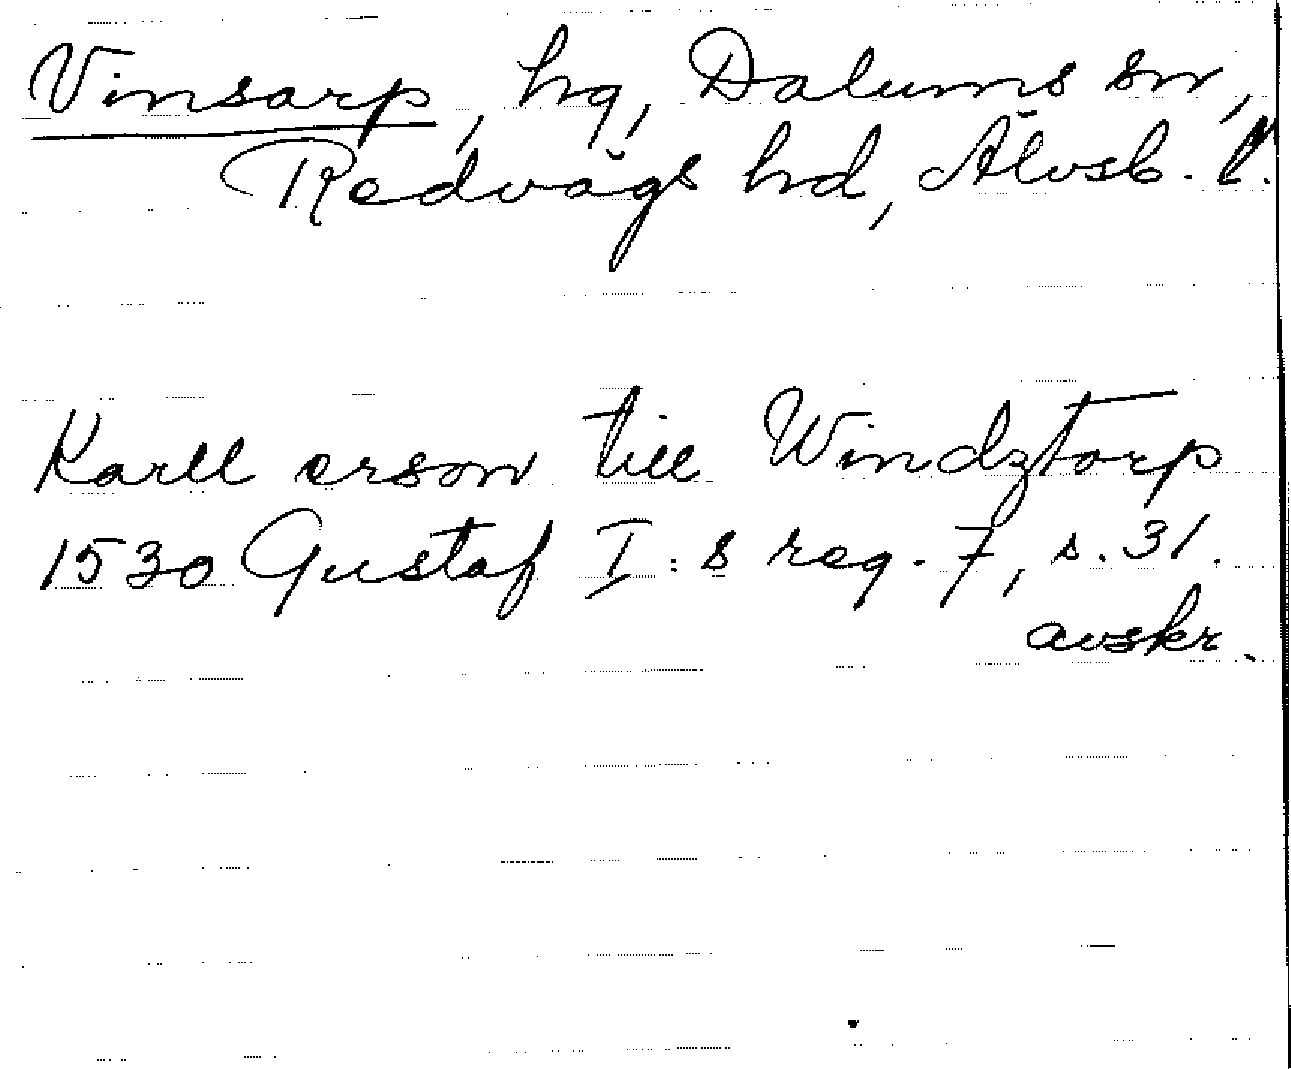 Vinsarp, hg, Dalums sn,
Redvägs hd, Älvsb. l.
Karll erson till Windztorp
1530 Gustaf I:s reg. 7, s. 31.
avskr.